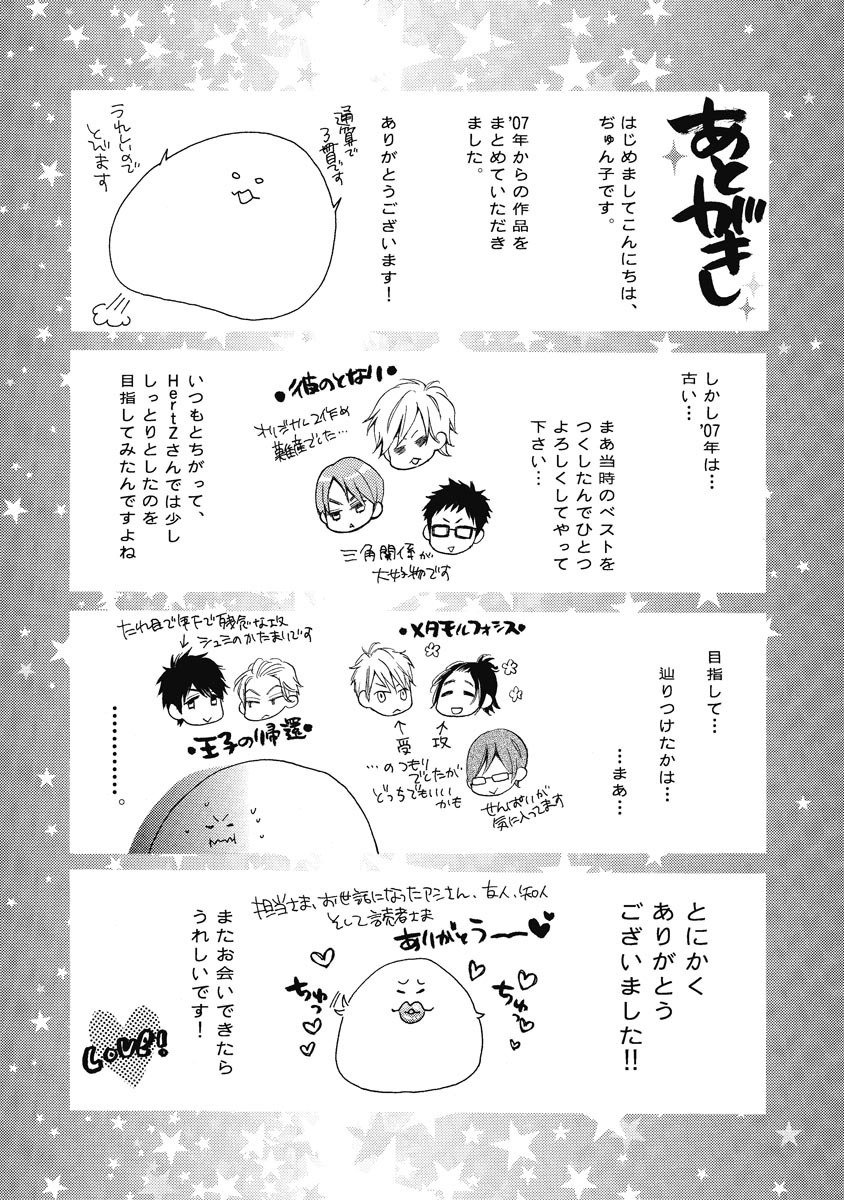 あとがき
はじめましてこんにちは、
ぢゅん子です。
'07年からの作品を
まとめていただき
ました。
ありがとうございます!
通算で
3冊です
うれしいので
とびます
しかし'07年は…
古い…
まあ当時のベストを
つくしたんでひとつ
よろしくしてやって
下さい…
・彼のとなり・
オリジナル2作め
難産でした…
三角関係が
大好物です
いつもとちがって、
HertZさんでは少し
しっとりとしたのを
目指してみたんですよね
目指して…
辿りつけたかは…
…まあ…
・メタモルフォシス・
受
攻
…のつもり
でしたが
どっちでもいい
かも
せんぱいが
気に入ってます
たれ目で年下で
な攻
シュミのかたまりです
・王子の帰還・
………。
とにかく
ありがとう
ございました!!
担当さま、お世話になったアシさん、友人、知人
そして読者さま
ありがとうー♥
ちゅっ
ちゅっ
またお会いできたら
うれしいです!
LOVE!